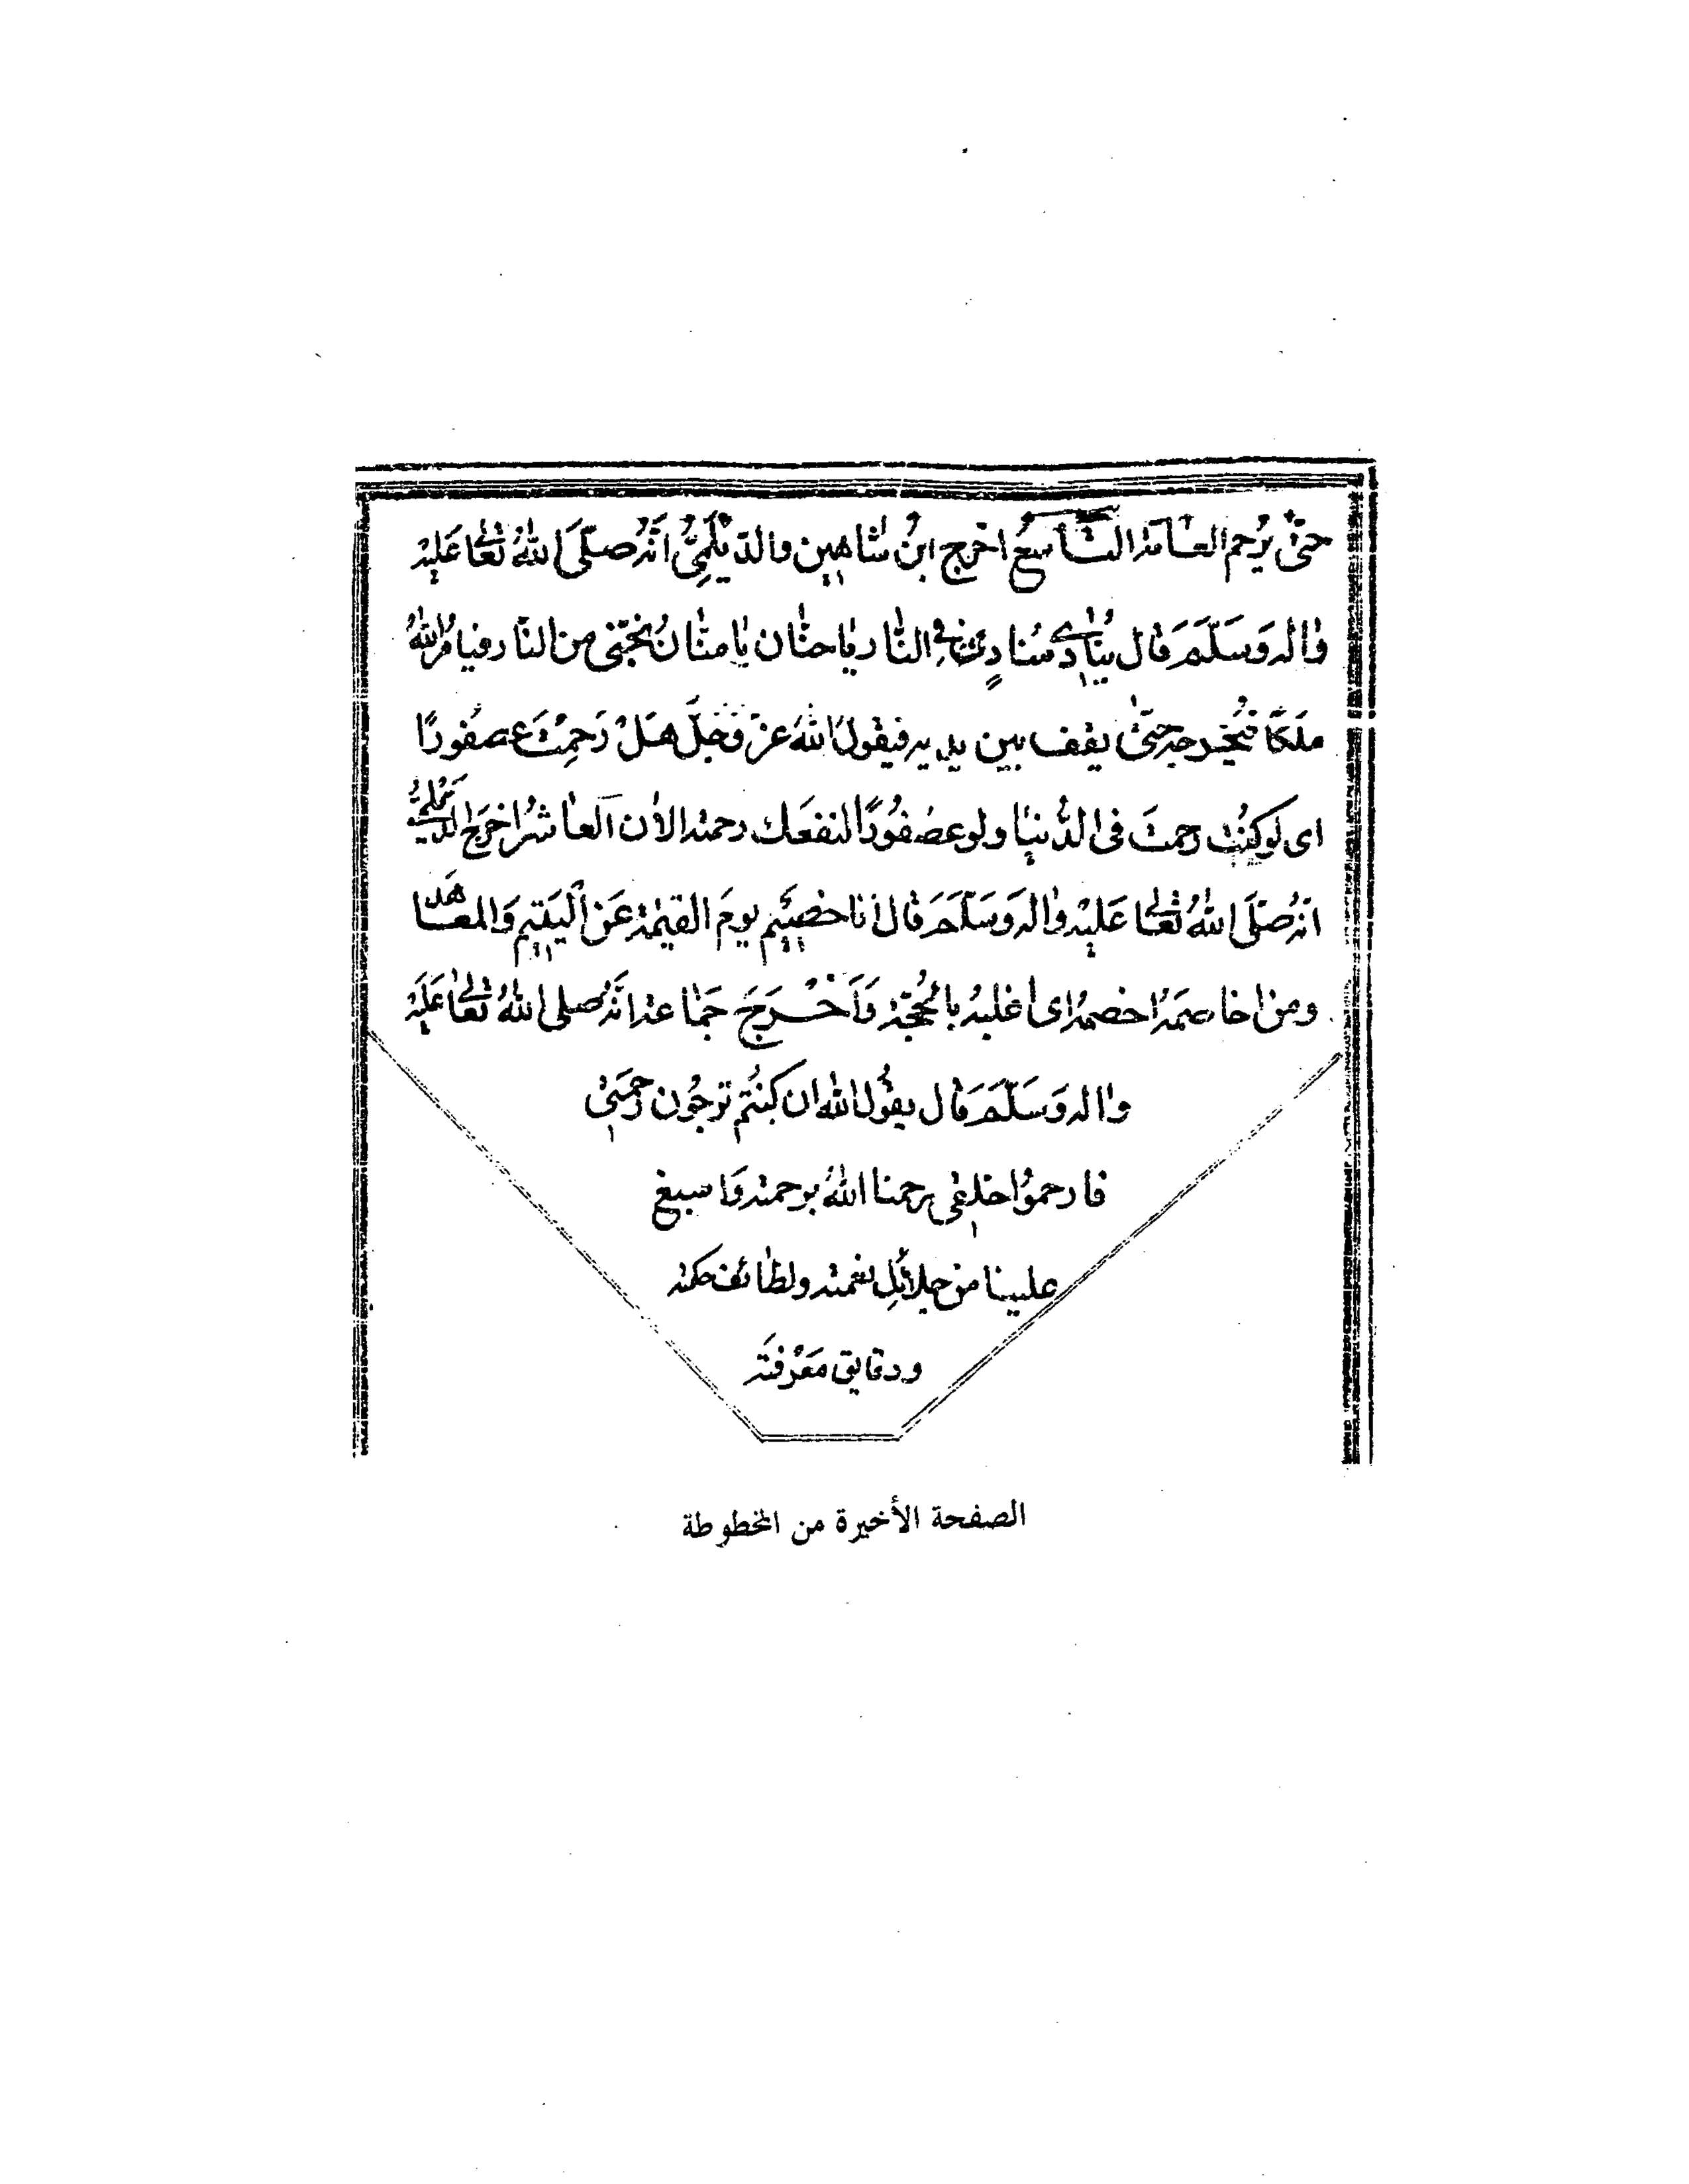 حتّٰى يرحم العامة التَّاسِعُ اخرج ابنُ شاهين والدّيْلَمِيُّ انَّهُ صلّىَ اللّٰهُ تعٰالى عَلَيْه
واٰله وَسَلَّمَ قال يُنٰادي مُنادٍ فى النّٰار يٰا حنّٰان يٰا منّٰان نُجِّنى من النّار فيامُر اللّٰهُ
ملَكًا فيُخرجه حتّٰى يقف بين يديه فيقولُ اللّٰهُ عزّ وَجلَّ هَلْ رَحِمْتَ عصفُورًا
اى لو كُنْت رحمتَ فى الدُّنيٰا ولو عصفُورًا لنفعَك رحمته الاٰن العٰاشرُ اخرَجَ الدَّيْلَمِىُّ
انّهُ صَلّىَ اللّٰهُ تعٰالى عَلَيْه واٰله وَسَلّمَ قال اَنا خصيم يومَ القيٰمة عَن اليَتيم وَالمعَاهَد
ومن اخاصمَهُ اخصمهُ اى اغلبهُ بالحُجّة وَاَخْرَجَ جَمٰاعة انَّهُ صلى اللّٰهُ تعٰالى عَلَيْه
واٰله وَسَلّمَ قال يقُولُ اللّٰه ان كنتُم ترجُون رَحمَتى
فارحموُا خلقى رحمنا اللّٰهُ برحمته وَاسبغ
علينا من جلائلِ نعمته ولطٰائف حكمه
ودقايق مَعْرفتَه
الصفحة الأخيرة من المخطوطة